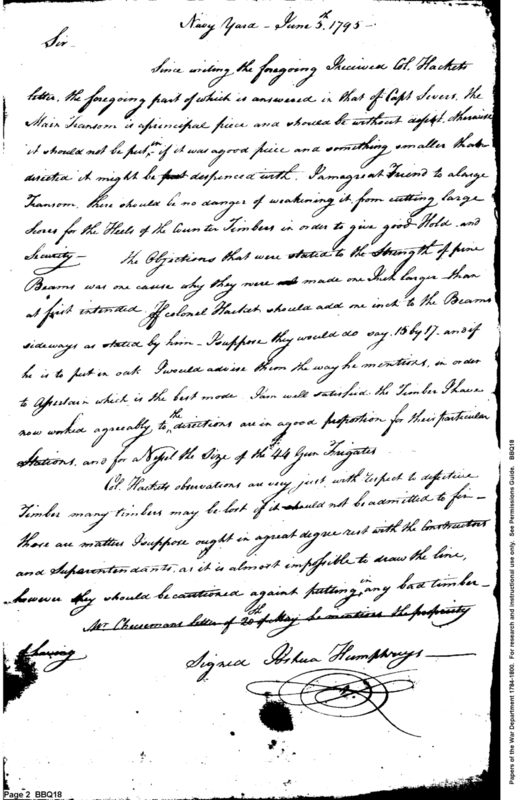 Navy Yard - June 5th. 1795 -
Sir -
Since writing the foregoing I received Col. Hackets
letter, the foregoing part of which is answered in that of Capt Severs, the
Main Transom is a principal piece and should be without defect. otherwise
it should not be put in, if it was a good piece and something smaller than
directed it might be put despenced with. I am a great Friend to a large
Transom, there should be no danger of weakening it, from cutting large
scores for the Heels of the Counter Timbers in order to give good Hold and
Security - The Objections that were stated to the Strength of pine
Beams was one cause why they were made one Inch larger than
at first intended If colonel Hacket should add one inch to the Beams
sideways as stated by him - I suppose they would do say. 15 by 17. and if
he is to put in oak I would advise them the way he mentions, in order
to Assertain which is the best mode. I am well satisfied the Timber I have
now worked agreeably to the directions are in a good proportion for their particular
Stations, and for a Vessel the Size of the 44 Gun Frigates
Col. Hackets observations are very just with respect to defective
Timber many timbers may be lost if it should not be admitted to for -
those are matters I suppose ought in a great degree rest with the Constructors
and Superintendants, as it is almost impossible to draw the line,
however they should be cautioned against putting in any bad timber -
Mr Cheesemans letter of 20th of May he mentions the propriety
of having
Signed Joshua Humphreys
Page 2 BBQ18
Papers of the War Department 1784-1800. For research and instructional use only. See Permissions Guide. BBQ18